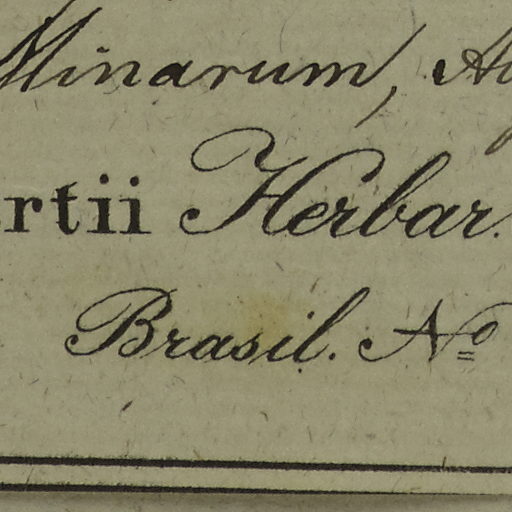 Minarum,
rtii Herbar.
Brasil. Nº